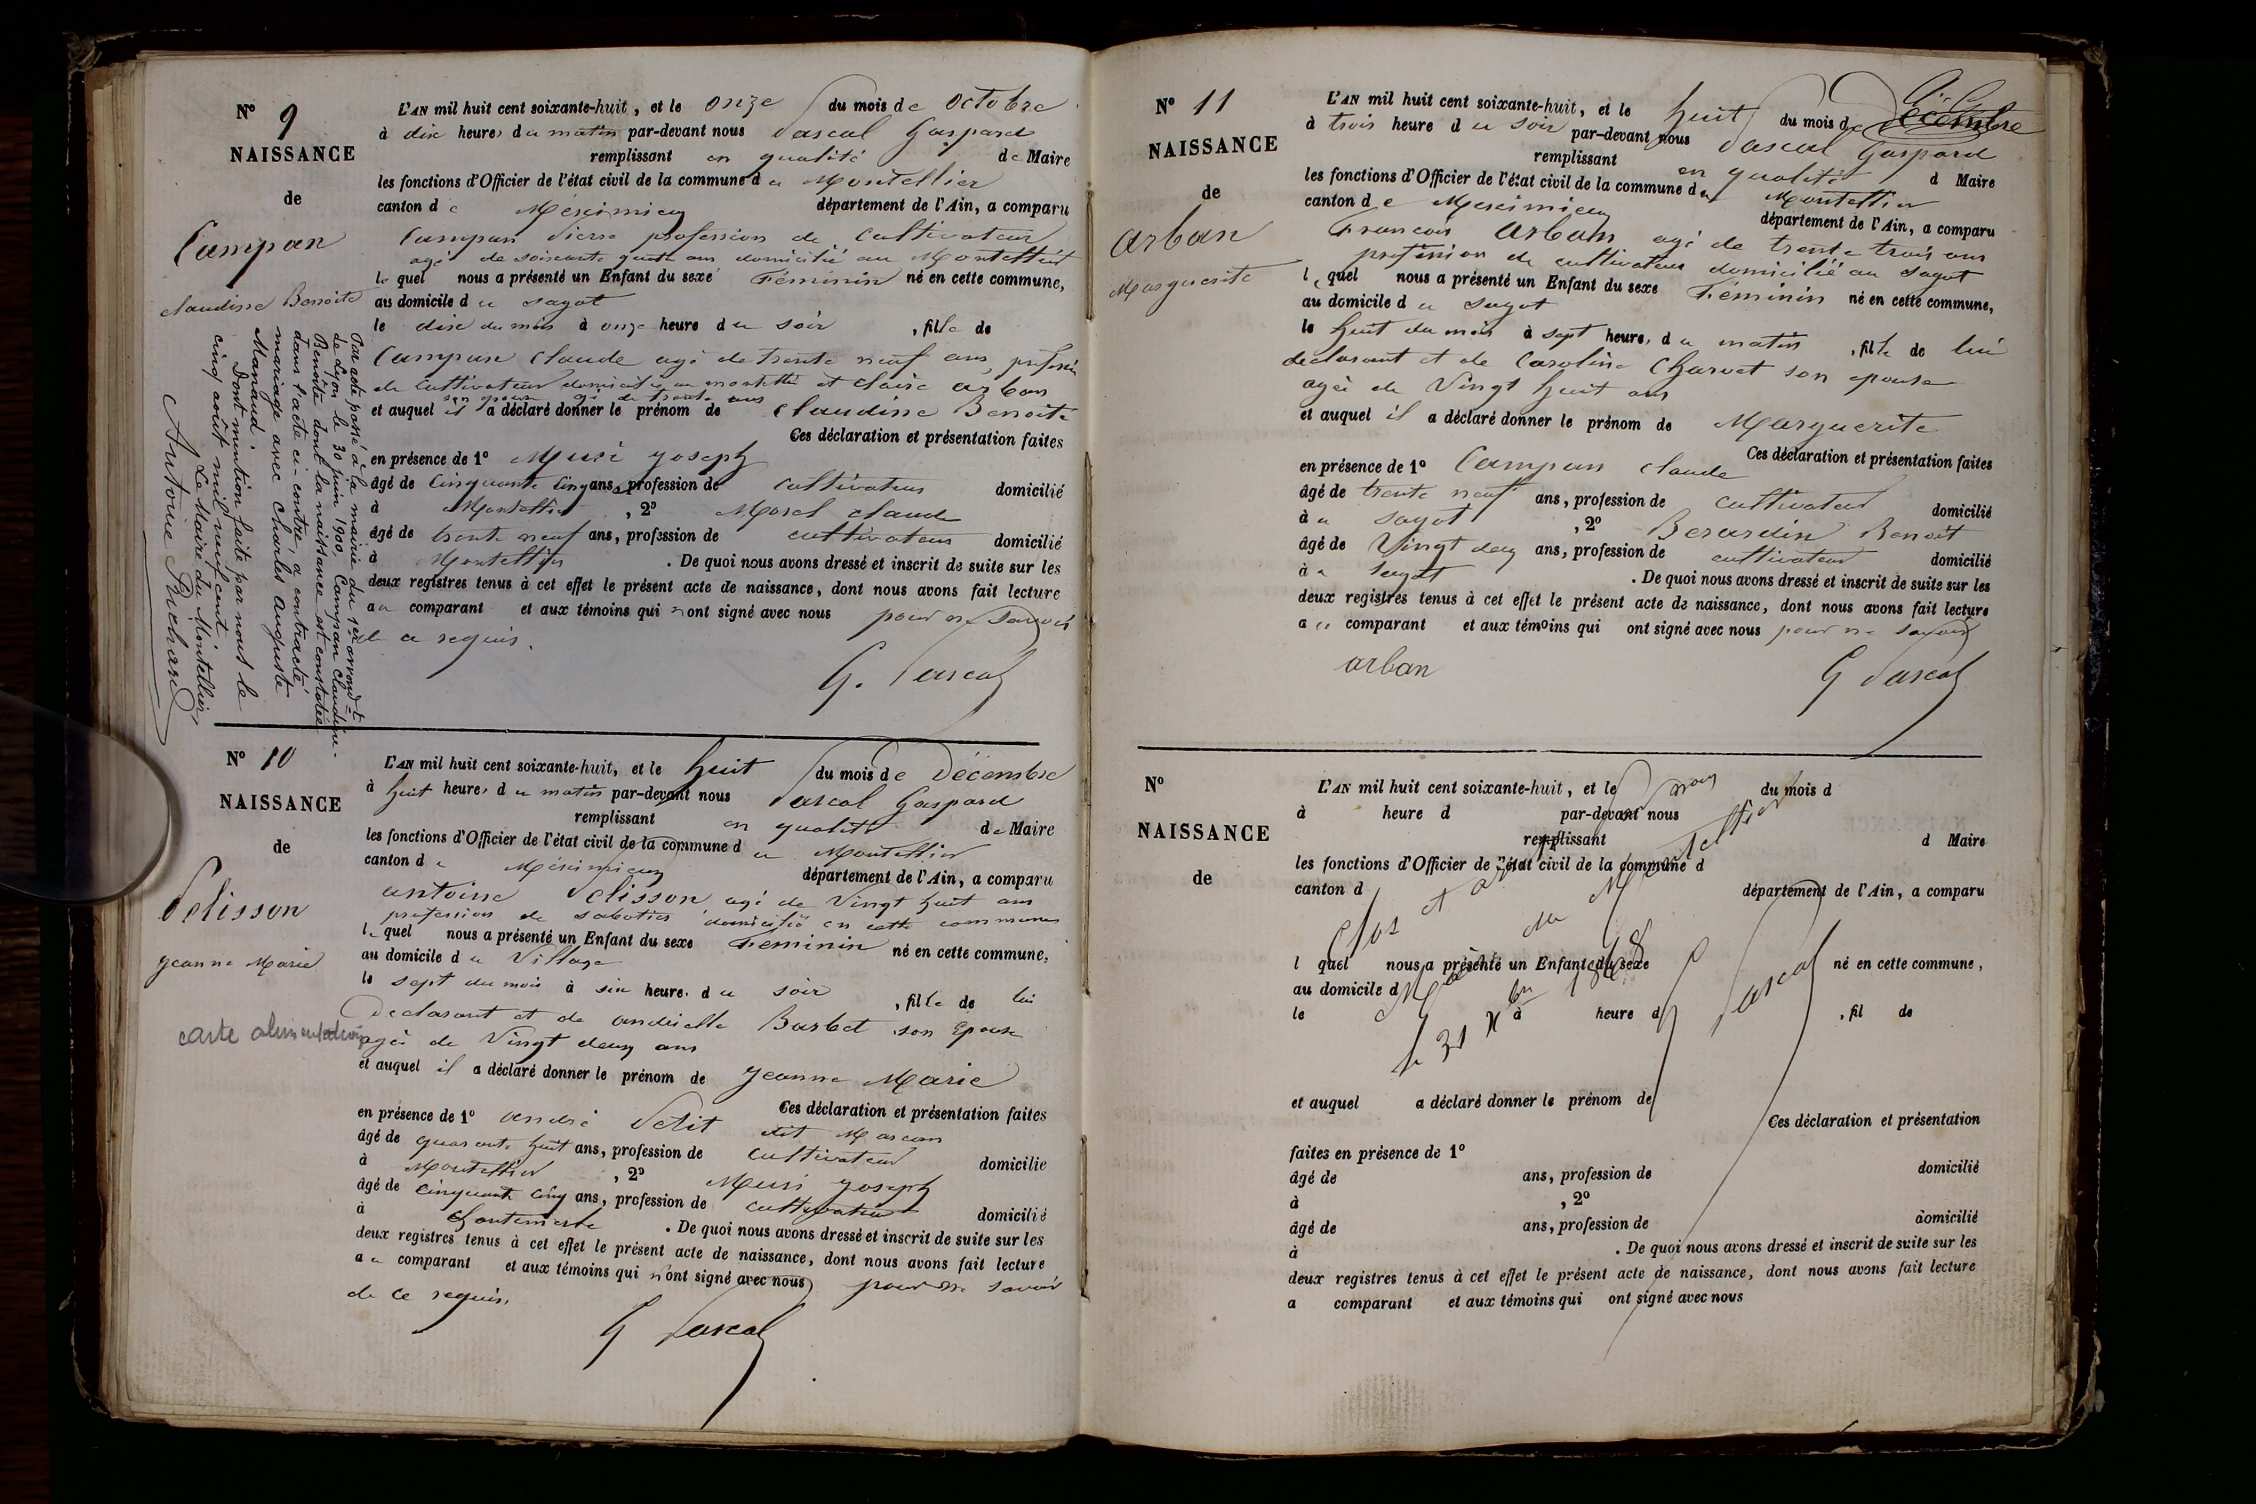 N° 9
NAISSANCE
de
Campan
claudine Benoite
L'AN mil huit cent soixante-huit, et le onze du mois de octobre
à dix heures du matin par-devant nous Pascal Gaspard
remplissant en qualité de Maire
les fonctions d'Officier de l'état civil de la commune du Montellier
canton de Méximieux département de l'Ain, a comparu
Campan Pierre profession de cultivateur
agé de soixante quatre ans domicilié au Montellier
lequel nous a présenté un Enfant du sexe Féminin né en cette commune,
au domicile du sayot
le dix du mois à onze heure du soir , fille de
Campan Claude agé de trente neuf ans, profession
de cultivateur domicilié au montellier et claire arban
son épouse agé de trente ans
et auquel il a déclaré donner le prénom de claudine Benoite
Ces déclaration et présentation faites
en présence de 1° Muri joseph
âgé de cinquante cinq ans, profession de cultivateur domicilié
à Montellier , 2° Morel claude
âgé de trente neuf ans, profession de cultivateur domicilié
à Montellier . De quoi nous avons dressé et inscrit de suite sur les
deux registres tenus à cet effet le présent acte de naissance, dont nous avons fait lecture
au comparant et aux témoins qui n'ont signé avec nous pour ne savoir
de ce requis.
G. Pascal
Par acte passé à la mairie du 1er arrondt
de Lyon le 30 juin 1900, Campan Claudine
Benoîte dont la naissance est constatée
dans l'acte ci-contre, a contracté
mariage avec Charles auguste
Manaud.
Dont mention faite par nous le
cinq août mil neuf cent.
Le Maire du Montellier,
Antoine Suchard
N° 10
NAISSANCE
de
Pelisson
jeanne Marie
carte alimentation
L'AN mil huit cent soixante-huit, et le huit du mois de Décembre
à huit heures du matin par-devant nous Pascal Gaspard
remplissant en qualité de Maire
les fonctions d'Officier de l'état civil de la commune du Montellier
canton de Méximieux département de l'Ain, a comparu
antoine Pelisson agé de Vingt huit ans
profession de sabotier domicilié en cette commune
lequel nous a présenté un Enfant du sexe Féminin né en cette commune,
au domicile du Village
le sept du mois à six heure du soir , fille de lui
Declarant et de andréelle Barbet son Epouse
agée de Vingt deux ans
et auquel il a déclaré donner le prénom de jeanne Marie
Ces déclaration et présentation faites
en présence de 1° andré Petit dit Marcon
âgé de quarante huit ans, profession de cultivateur domicilié
à Montellier , 2° Muri joseph
âgé de cinquante cinq ans, profession de cultivateur domicilié
à Chantemerle . De quoi nous avons dressé et inscrit de suite sur les
deux registres tenus à cet effet le présent acte de naissance, dont nous avons fait lecture
au comparant et aux témoins qui n'ont signé avec nous pour ne savoir
de ce requis.
G Pascal
N° 11
NAISSANCE
de
arban
Marguerite
L'AN mil huit cent soixante-huit, et le huit du mois de Décembre
à trois heure du soir par-devant nous Pascal Gaspard
remplissant en qualité d Maire
les fonctions d'Officier de l'état civil de la commune du Montellier
canton de Meximieux département de l'Ain, a comparu
Francois arban agé de trente trois ans
profession de cultivateur domicilié au sayot
lequel nous a présenté un Enfant du sexe Féminin né en cette commune,
au domicile du sayot
le huit du mois à sept heure, du matin , fille de lui
declarant et de Caroline Charvet son epouse
agée de Vingt huit ans
et auquel il a déclaré donner le prénom de Marguerite
Ces déclaration et présentation faites
en présence de 1° Campan claude
âgé de trente neuf ans, profession de cultivateur domicilié
à u sayot , 2° Berardin Benoit
âgé de Vingt deux ans, profession de cultivateur domicilié
à u sayot . De quoi nous avons dressé et inscrit de suite sur les
deux registres tenus à cet effet le présent acte de naissance, dont nous avons fait lecture
au comparant et aux témoins qui ont signé avec nous pour ne savoir
arban
G Pascal
N°
NAISSANCE
de
L'AN mil huit cent soixante-huit, et le du mois d
à heure d par-devant nous
remplissant d Maire
les fonctions d'Officier de l'état civil de la commune d
canton d département de l'Ain, a comparu
l quel nous a présenté un Enfant du sexe né en cette commune,
au domicile d
le à heure d , fil de
et auquel a déclaré donner le prénom de
Ces déclaration et présentation
faites en présence de 1°
âgé de ans, profession de domicilié
à , 2°
âgé de ans, profession de domicilié
à . De quoi nous avons dressé et inscrit de suite sur les
deux registres tenus à cet effet le présent acte de naissance, dont nous avons fait lecture
a comparant et aux témoins qui ont signé avec nous
Clos et par nous
Maire du Montellier
le 31 Xbre 1868
G Pascal